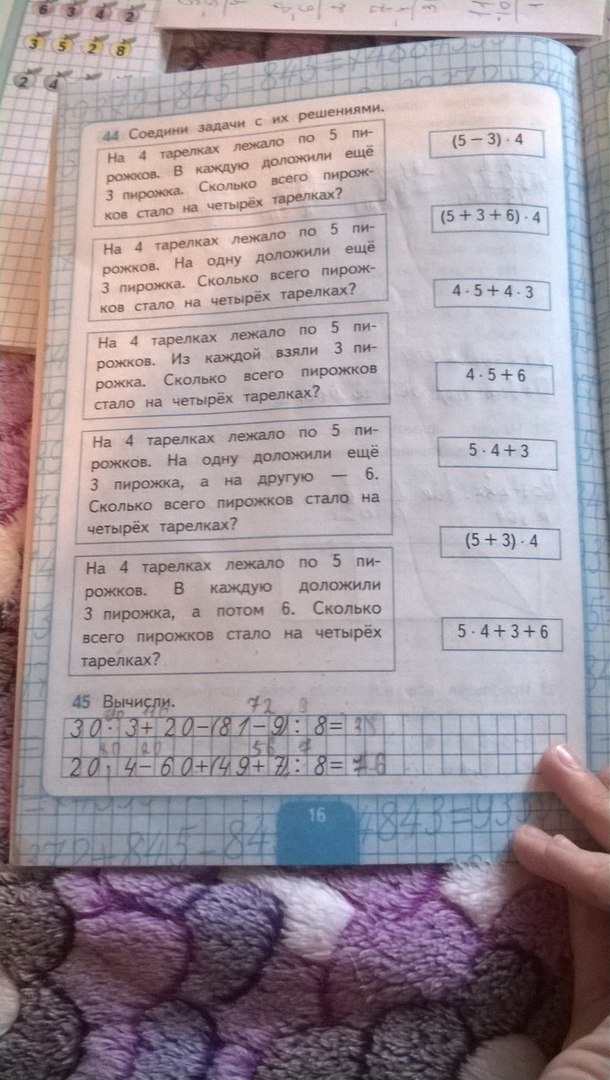 6 3 4 2
3 5 2 8
2 4
44 Соедини задачи с их решениями.
На 4 тарелках лежало по 5 пи-
рожков. В каждую доложили ещё
3 пирожка. Сколько всего пирож-
ков стало на четырёх тарелках?
На 4 тарелках лежало по 5 пи-
рожков. На одну доложили ещё
3 пирожка. Сколько всего пирож-
ков стало на четырёх тарелках?
На 4 тарелках лежало по 5 пи-
рожков. Из каждой взяли 3 пи-
рожка. Сколько всего пирожков
стало на четырёх тарелках?
На 4 тарелках лежало по 5 пи-
рожков. На одну доложили ещё
3 пирожка, а на другую — 6.
Сколько всего пирожков стало на
четырёх тарелках?
На 4 тарелках лежало по 5 пи-
рожков. В каждую доложили
3 пирожка, а потом 6. Сколько
всего пирожков стало на четырёх
тарелках?
(5 − 3) · 4
(5 + 3 + 6) · 4
4 · 5 + 4 · 3
4 · 5 + 6
5 · 4 + 3
(5 + 3) · 4
5 · 4 + 3 + 6
45 Вычисли.
72 9
30 · 3 + 20 − (81 − 9) : 8 =
80 20 56 7
20 · 4 − 60 + (49 + 7) : 8 =
16